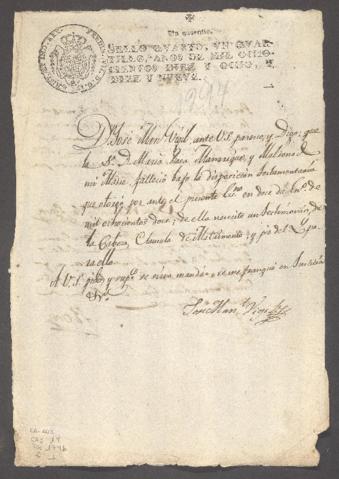 Un quartillo.
SELLO QUARTO, UN QUAR-
TILLO, AÑOS DE MIL OCHO-
CIENTOS DIEZ Y OCHO, Y
DIEZ Y NUEVE.
Dn. José Man. Vigil, ante V.S. paresco, y Digo: que
la Sa. Da. Maria Manrique, y Maldonado
mi Madre, fallecio bajo la disposicion testamentaria
que otorgó por ante el presente en doce de En.o de
mil ochocientos doce; de ella necesito un testimonio, de
la Cabeza, Clausula de y pie del
para ello
A V.S. pido y sup.co se sirva mandar se me franquee en Justicia
José Man. Vigil